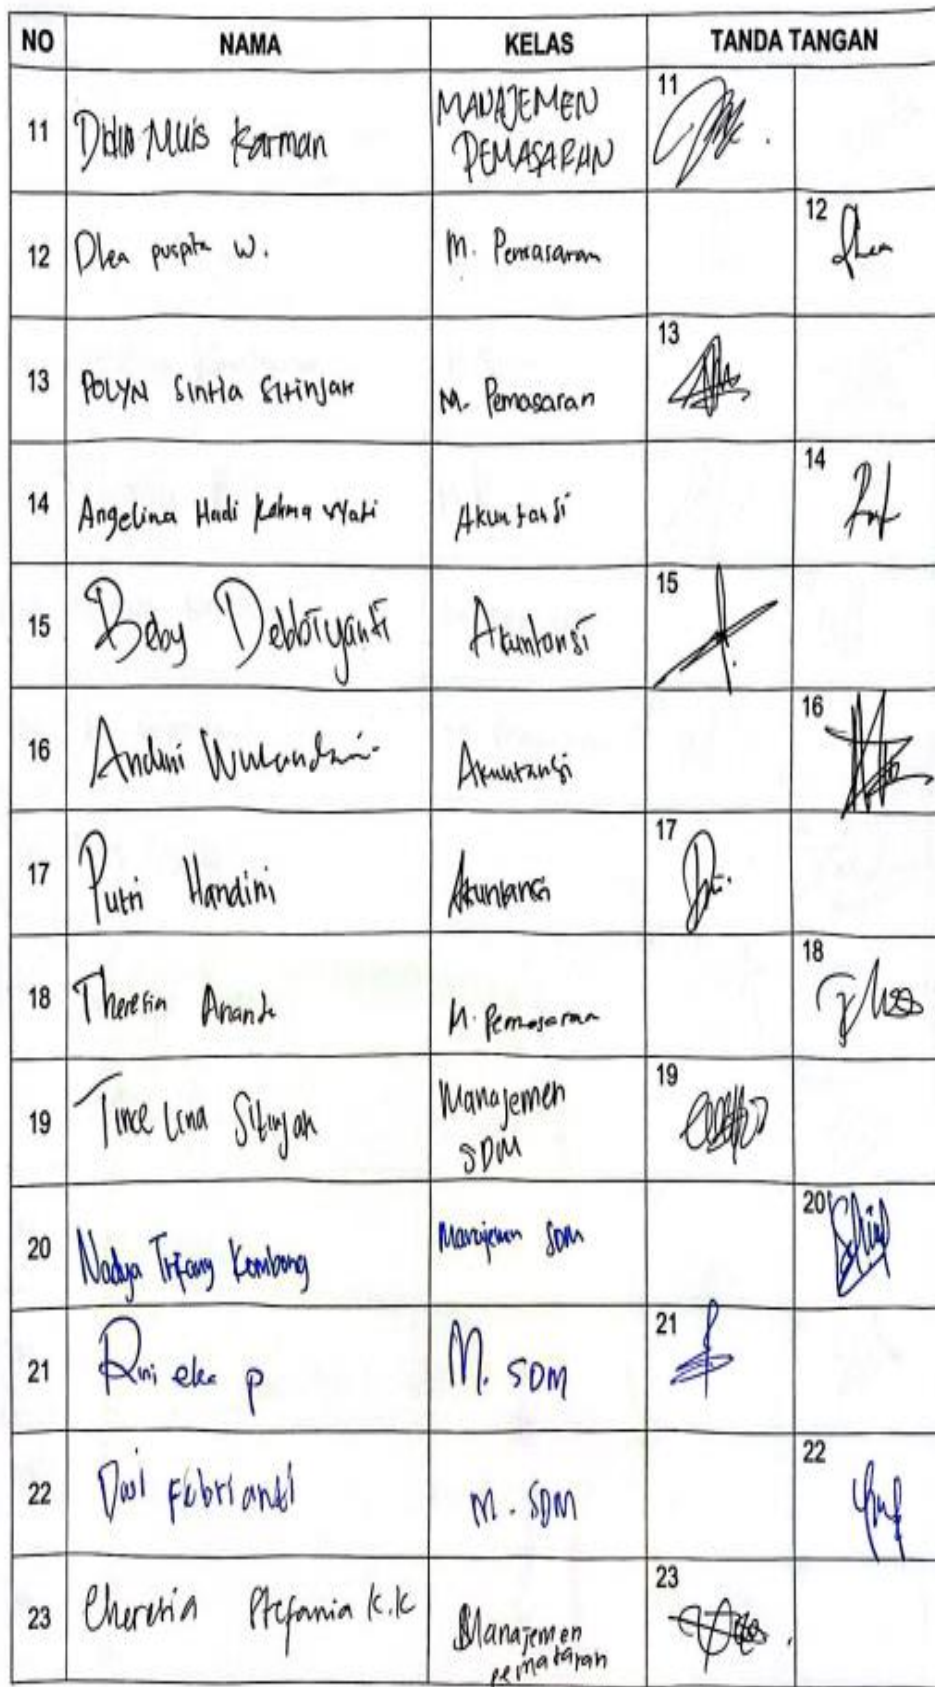 NO NAMA KELAS TANDA TANGAN
11 Didin Muis Karman MANAJEMEN PEMASARAN 11
12 Dhea puspita W. M. Pemasaran 12
13 POLYN Sintia Sitinjak M. Pemasaran 13
14 Angelina Hadi Wati Akuntansi 14
15 Beby Debbiyanti Akuntansi 15
16 Andini Wulandari Akuntansi 16
17 Putri Handini Akuntansi 17
18 Theresia Ananda M. Pemasaran 18
19 Tince Lina Sitinjak Manajemen SDM 19
20 Nadya Kombong Manajemen SDM 20
21 Rini eka p M. SDM 21
22 Dwi Febrianti M. SDM 22
23 Cheresia Stefania K.K Manajemen pemasaran 23